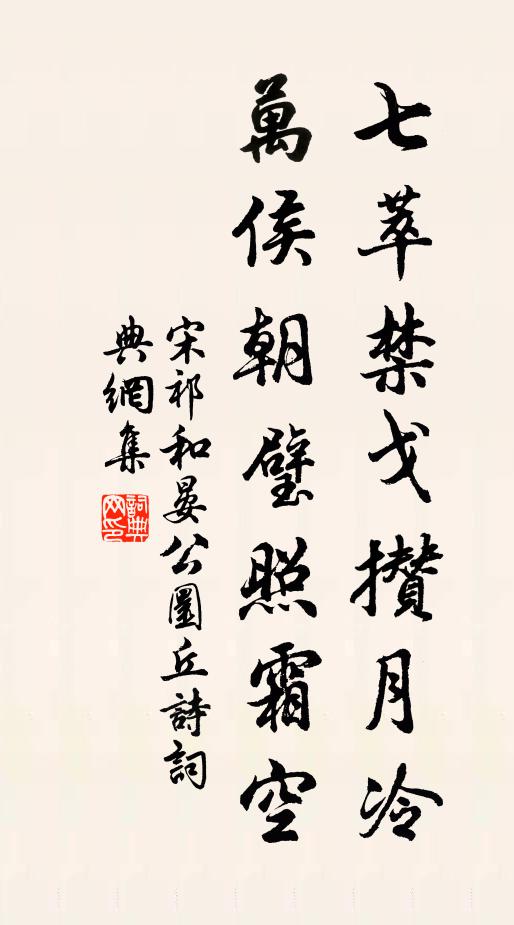 七萃禁戈攢月冷
萬侯朝璧照霜空
宋祁和晏公圜丘詩詞
典網集
詞典網印